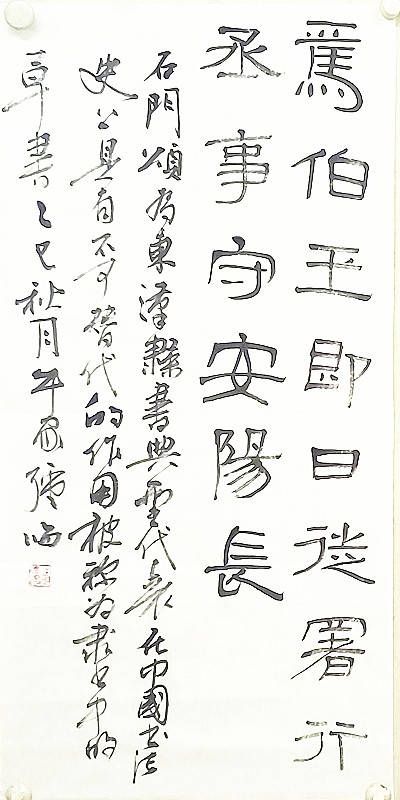 焉伯玉即日徙署行
丞事守安陽長
石門頌为東漢隸書典型代表在中國书法
史上具有不可替代的作用被称为隶书中的
草書乙巳秋月临